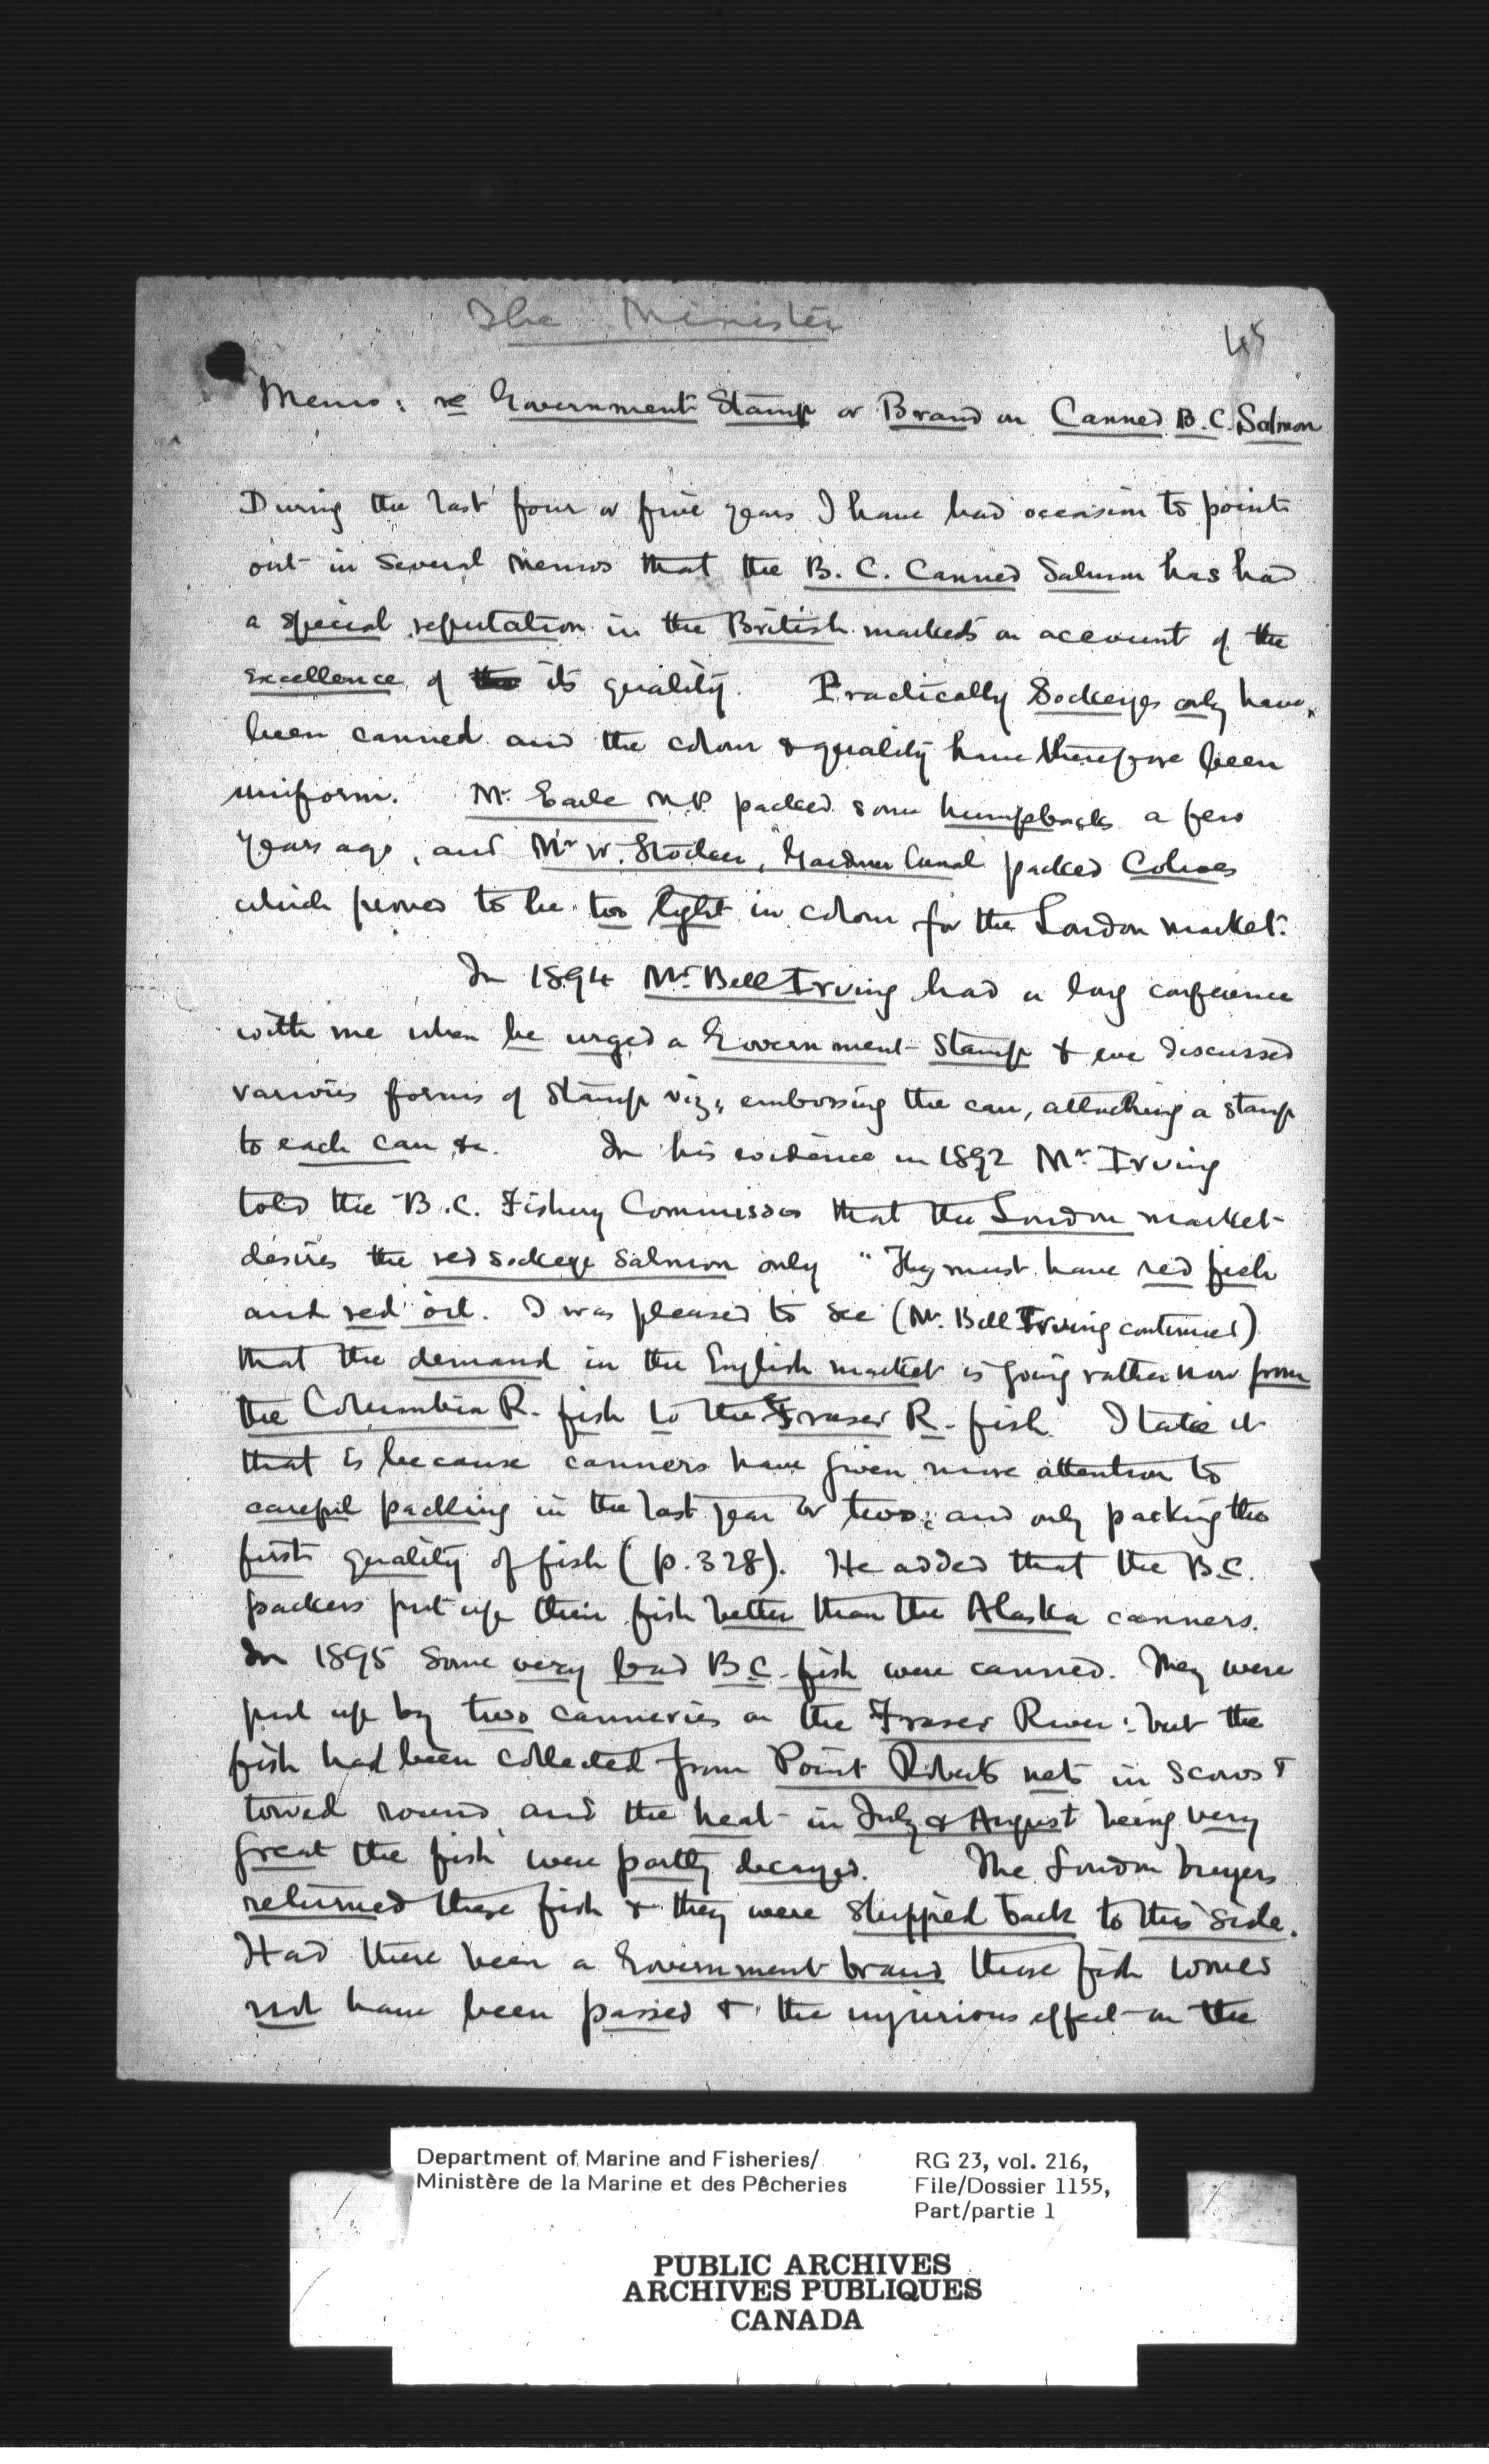 The Minister
45
Memo: re Government Stamp or Brand on Canned B.C. Salmon
During the last four or five years I have had occasion to point
out in several memos that the B. C. Canned Salmon has had
a special reputation in the British markets on account of the
excellence of the its quality. Practically Sockeyes only have
been canned and the colour & quality have therefore been
uniform. Mr. Earle M.P. packed some humpbacks a few
years ago, and Mr W. Gardner Canal packed Cohoes
which proved to be too light in colour for the London market.
In 1894 Mr. Bell Irving had a long conference
with me when he urged a Government Stamp & we discussed
various forms of Stamp viz, embossing the can, attaching a stamp
to each can &c. In his evidence in 1892 Mr. Irving
told the B.C. Fishery Commission that the London market
desires the red sockeye salmon only "They must have red fish
and red oil. I was pleased to see (Mr. Bell Irving continued)
that the demand in the English market is going rather now from
the Columbia R. fish to the Fraser R. fish. I take it
that is because canners have given more attention to
careful packing in the last year or two; and only packing the
first quality of fish (p. 328). He added that the B.C.
packers put up their fish better than the Alaska canners.
In 1895 some very bad B.C. fish were canned. They were
put up by two canneries on the Fraser River: but the
fish had been collected from Point Roberts nets in scows &
towed round and the heat in July & August being very
great the fish were partly decayed. The London buyers
returned these fish & they were shipped back to this side.
Had there been a Government brand these fish would
not have been passed & the injurious effect on the
Department of Marine and Fisheries/
Ministère de la Marine et des Pêcheries
RG 23, vol. 216,
File/Dossier 1155,
Part/partie 1
PUBLIC ARCHIVES
ARCHIVES PUBLIQUES
CANADA